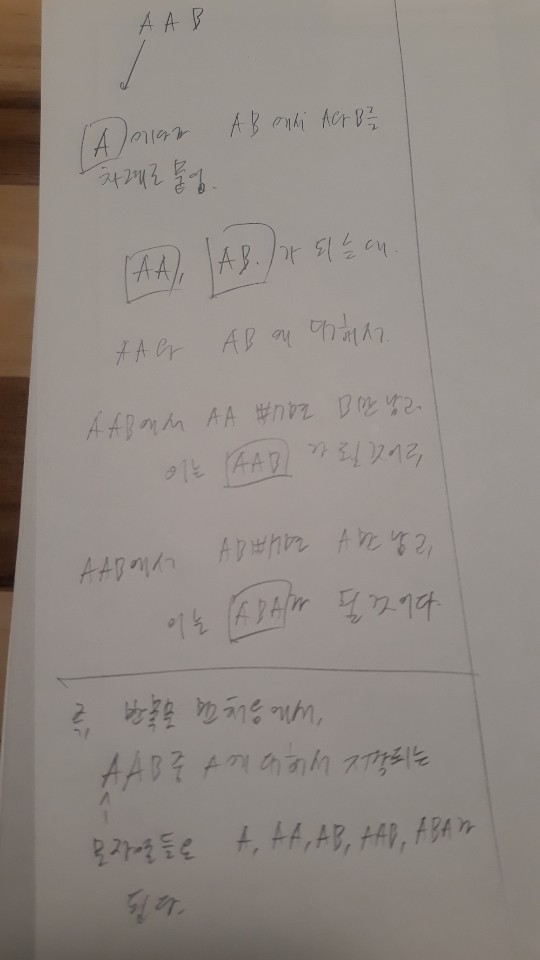 AAB
A 에다가 AB 에서 A와 B를
차례로 붙임.
AA, AB. 가 되는데.
AA와 AB 에 대해서.
AAB에서 AA 빼면 B만 남고.
이는 AAB 가 될것이고,
AAB에서 AB빼면 A만 남고,
이는 ABA가 될것이다.
즉, 반복문 맨처음에서,
AAB중 A에 대해서 시작되는
문자열들은 A, AA, AB, AAB, ABA가
된다.